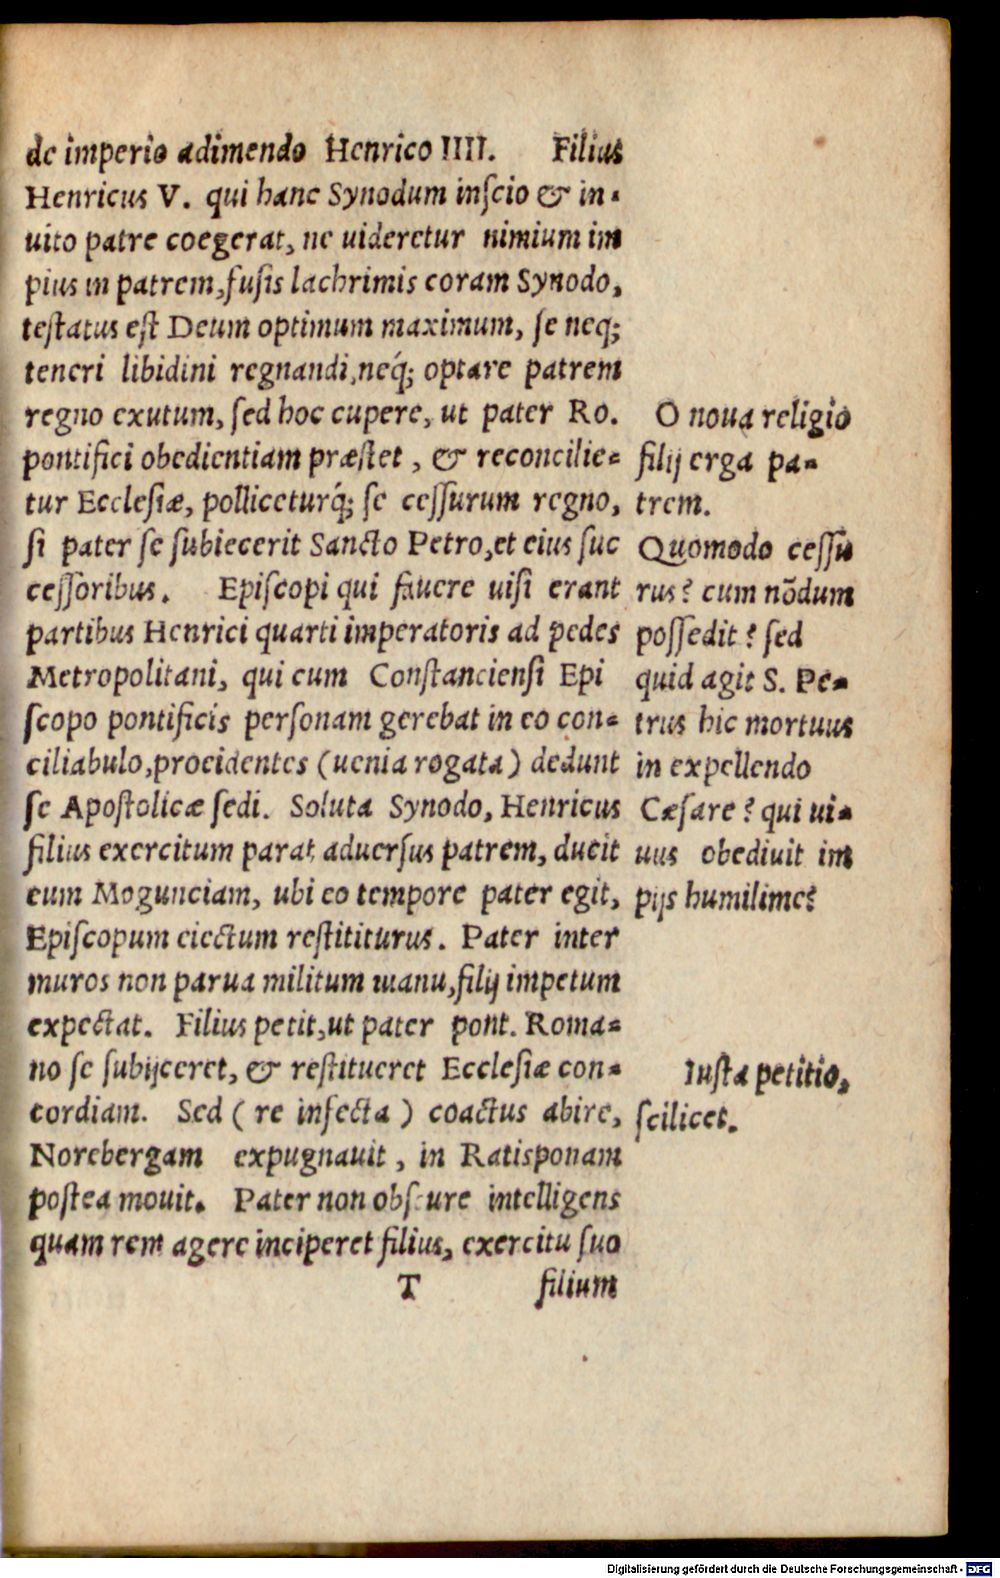 de imperio adimendo Henrico IIII. Filius
Henricus V. qui hanc Synodum inſcio & in-
uito patre coegerat, ne uideretur nimium im
pius in patrem, fuſis lachrimis coram Synodo,
teſtatus eſt Deum optimum maximum, ſe neq;
teneri libidini regnandi, neq́; optare patrem
regno exutum, ſed hoc cupere, ut pater Ro.
pontifici obedientiam præſtet, & reconcilie-
tur Eccleſiæ, polliceturq́; ſe ceſſurum regno,
ſi pater ſe ſubiecerit Sancto Petro, et eius ſuc
ceſſoribus. Epiſcopi qui fauere uiſi erant
partibus Henrici quarti imperatoris ad pedes
Metropolitani, qui cum Conſtancienſi Epi
ſcopo pontificis perſonam gerebat in eo con-
ciliabulo, procidentes (uenia rogata) dedunt
ſe Apoſtolicæ ſedi. Soluta Synodo, Henricus
filius exercitum parat aduerſus patrem, ducit
eum Mogunciam, ubi eo tempore pater egit,
Epiſcopum eiectum reſtititurus. Pater inter
muros non parua militum manu, filij impetum
expectat. Filius petit, ut pater pont. Roma-
no ſe ſubijceret, & reſtitueret Eccleſiæ con-
cordiam. Sed (re infecta) coactus abire,
Norebergam expugnauit, in Ratisponam
poſtea mouit. Pater non obſcure intelligens
quam rem agere inciperet filius, exercitu ſuo
T filium
O noua religio
filij erga pa-
trem.
Quomodo ceſſu
rus? cum nõdum
poſſedit? ſed
quid agit S. Pe-
trus hic mortuus
in expellendo
Cæſare? qui ui-
uus obediuit im
pijs humilime?
Iuſta petitio,
ſcilicet.
Digitalisierung gefördert durch die Deutsche Forschungsgemeinschaft - DFG